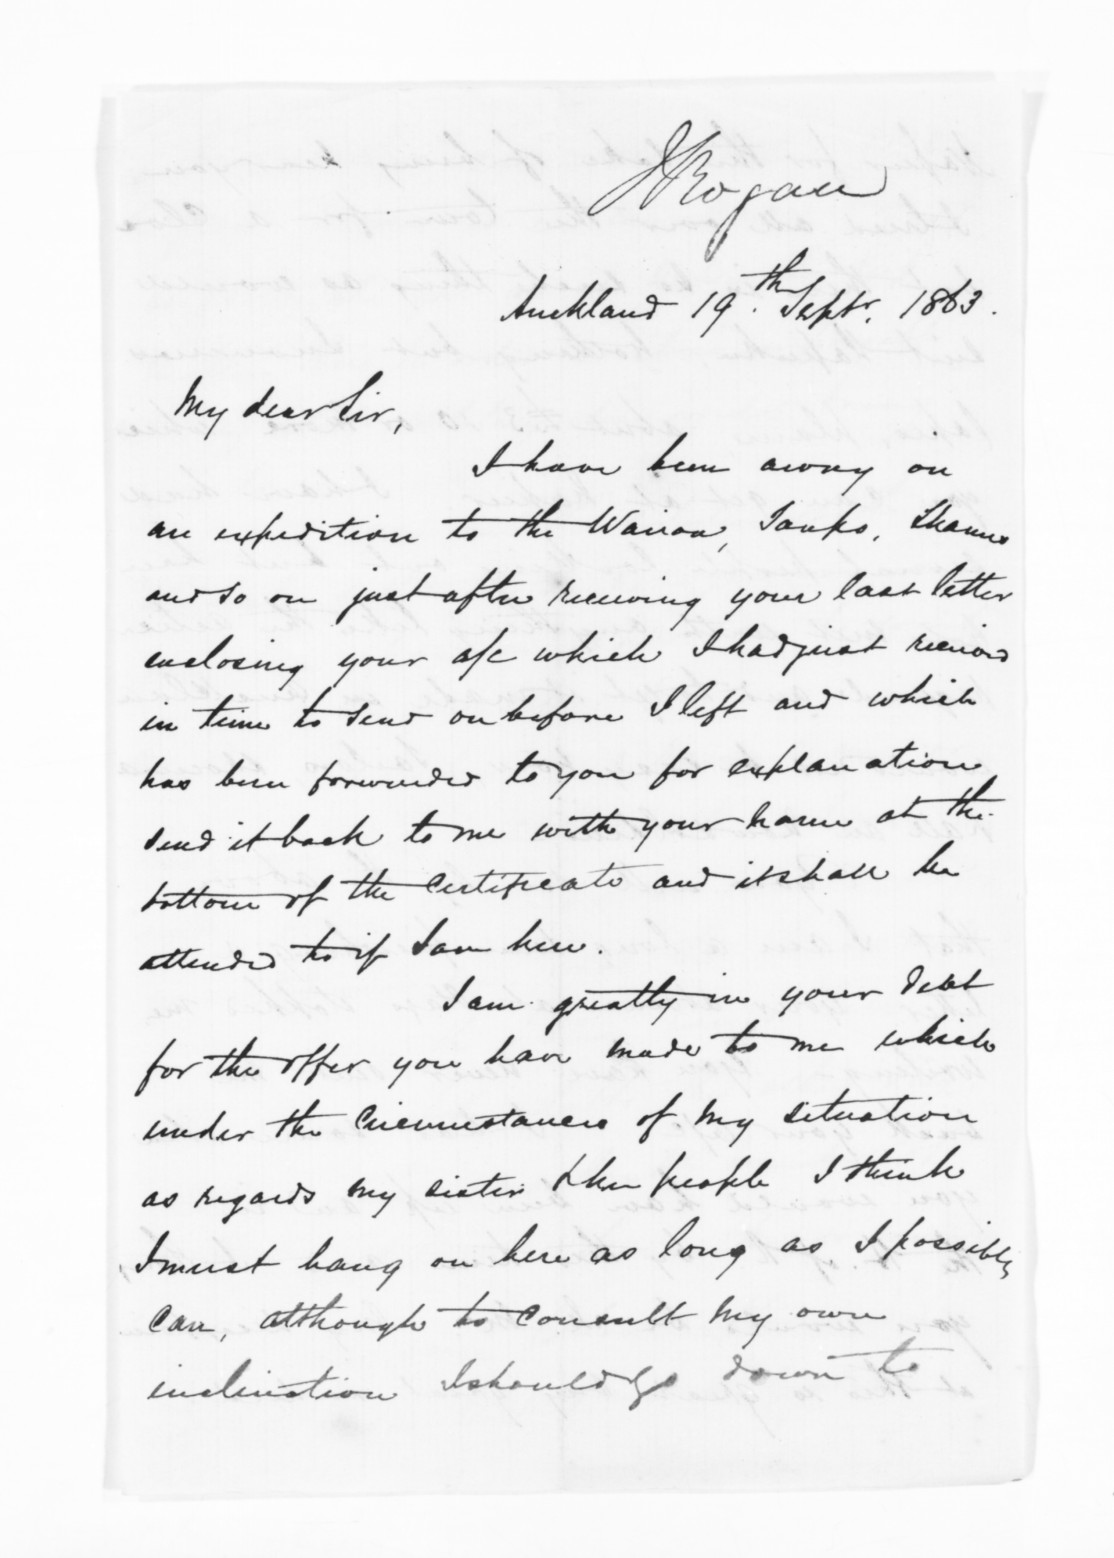 J Rogan
Auckland 19th Septr. 1863.
My dear Sir,
I have been away on
an expedition to the Wairoa, Taupo, Thames
and so on just after receiving your last letter
enclosing your a/c which I had just received
in time to send on before I left and which
has been forwarded to you for explanation
send it back to me with your name at the
bottom of the Certificate and it shall be
attended to if I am here.
I am greatly in your debt
for the offer you have made to me which
under the circumstances of my situation
as regards my sister & her people I think
I must hang on here as long as I possibly
can, although to consult my own
inclination I should go down to